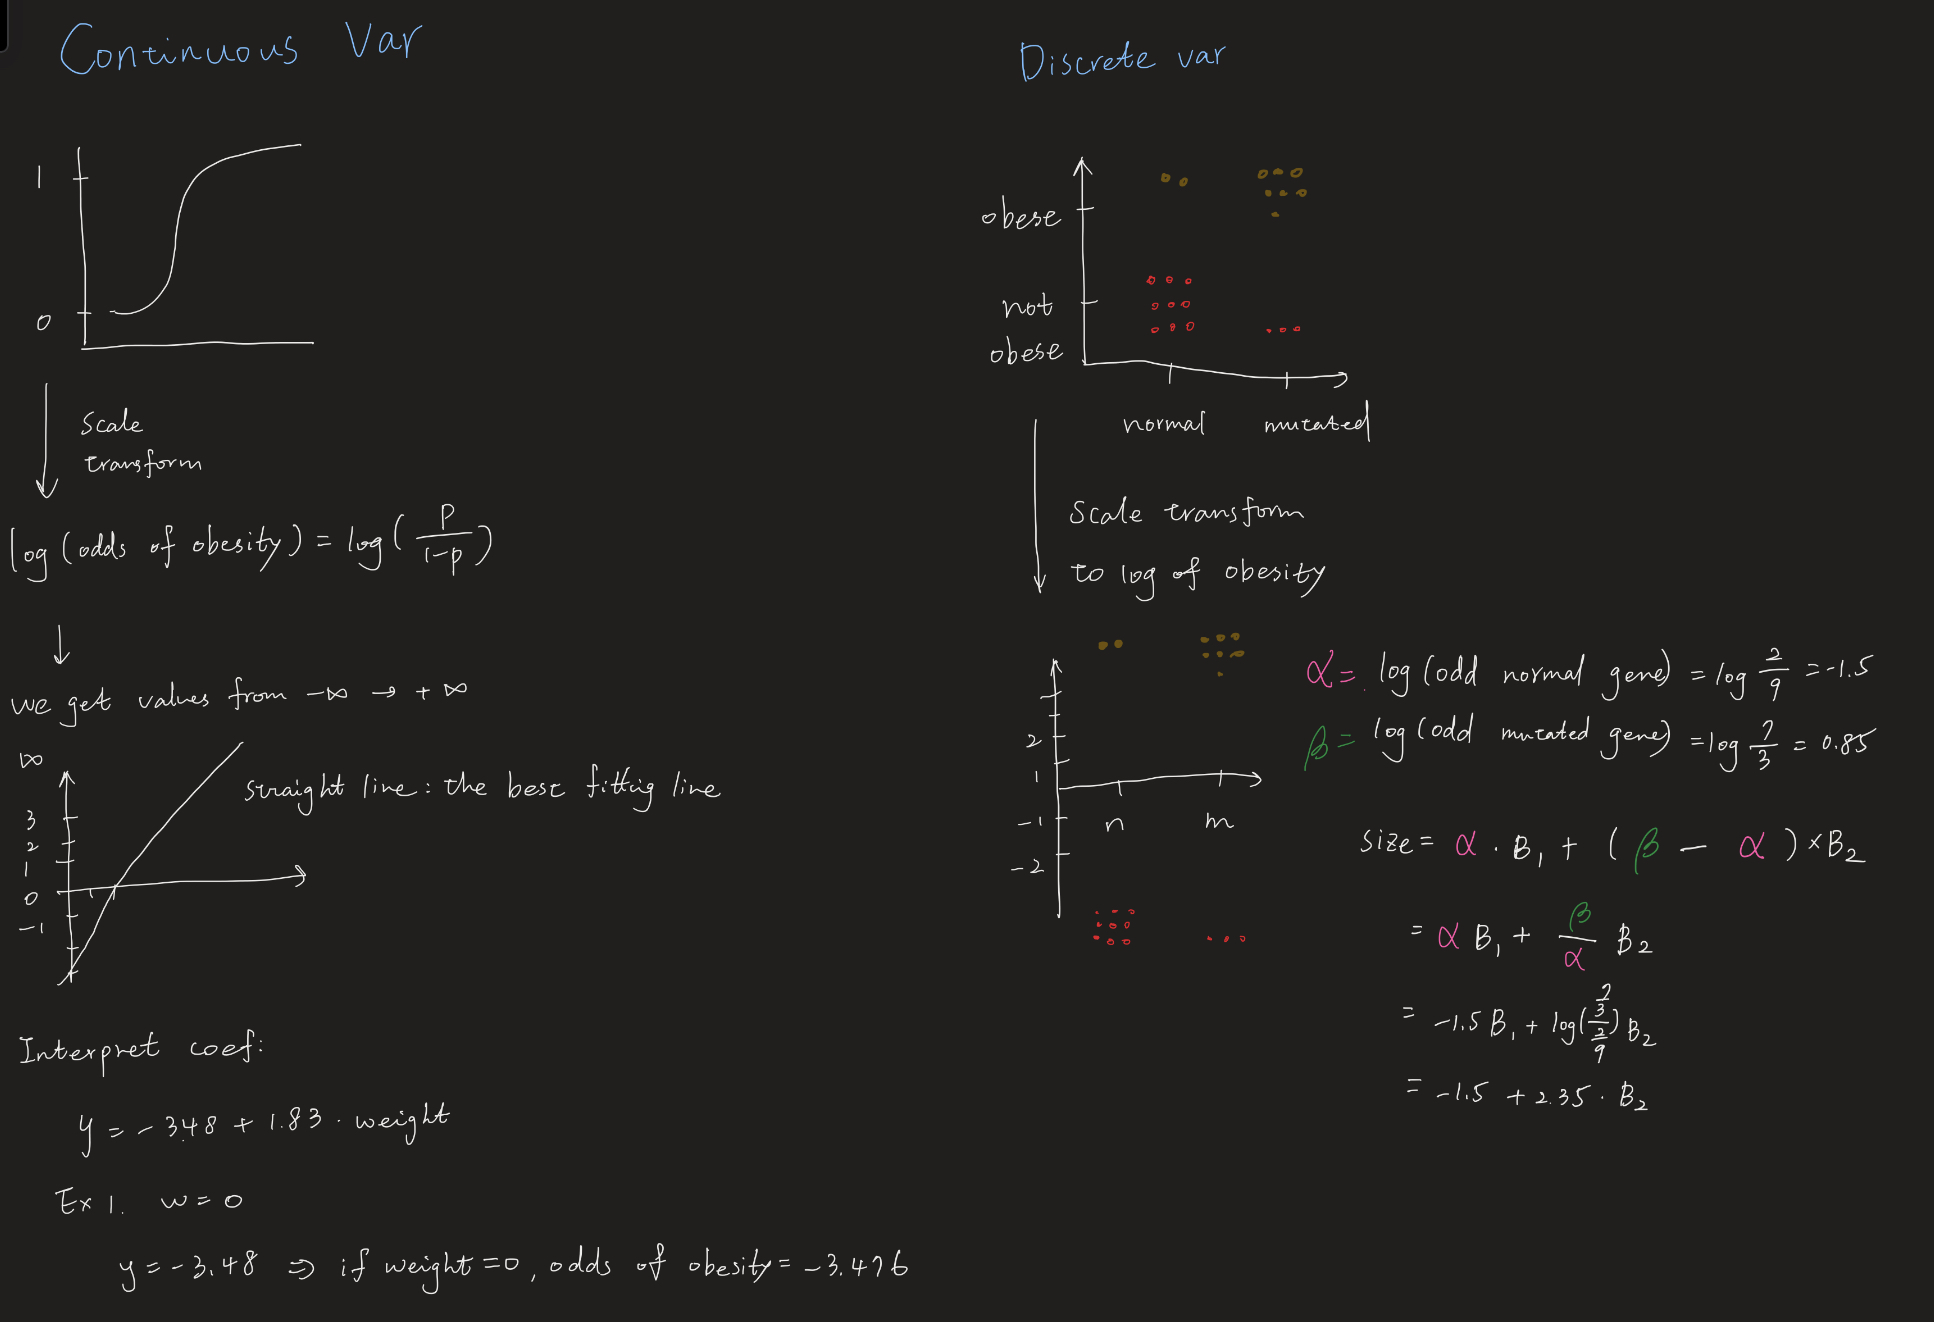 Continuous Var
1
0
Scale
transform
log (odds of obesity) = log( p / 1-p )
we get values from -∞ → + ∞
∞
3
2
1
0
-1
straight line: the best fitting line
Interpret coef:
y = - 3.48 + 1.83 · weight
Ex 1. w = 0
y = - 3.48 ⇒ if weight = 0, odds of obesity = - 3.476
Discrete var
obese
not
obese
normal mutated
Scale transform
to log of obesity
2
1
-1
-2
n m
α = log (odd normal gene) = log 2/9 = -1.5
β = log (odd mutated gene) = log 7/3 = 0.85
size = α · B₁ + ( β - α ) × B₂
= α B₁ + β/α B₂
= -1.5 B₁ + log( 7/3 / 2/9 ) B₂
= -1.5 + 2.35 · B₂